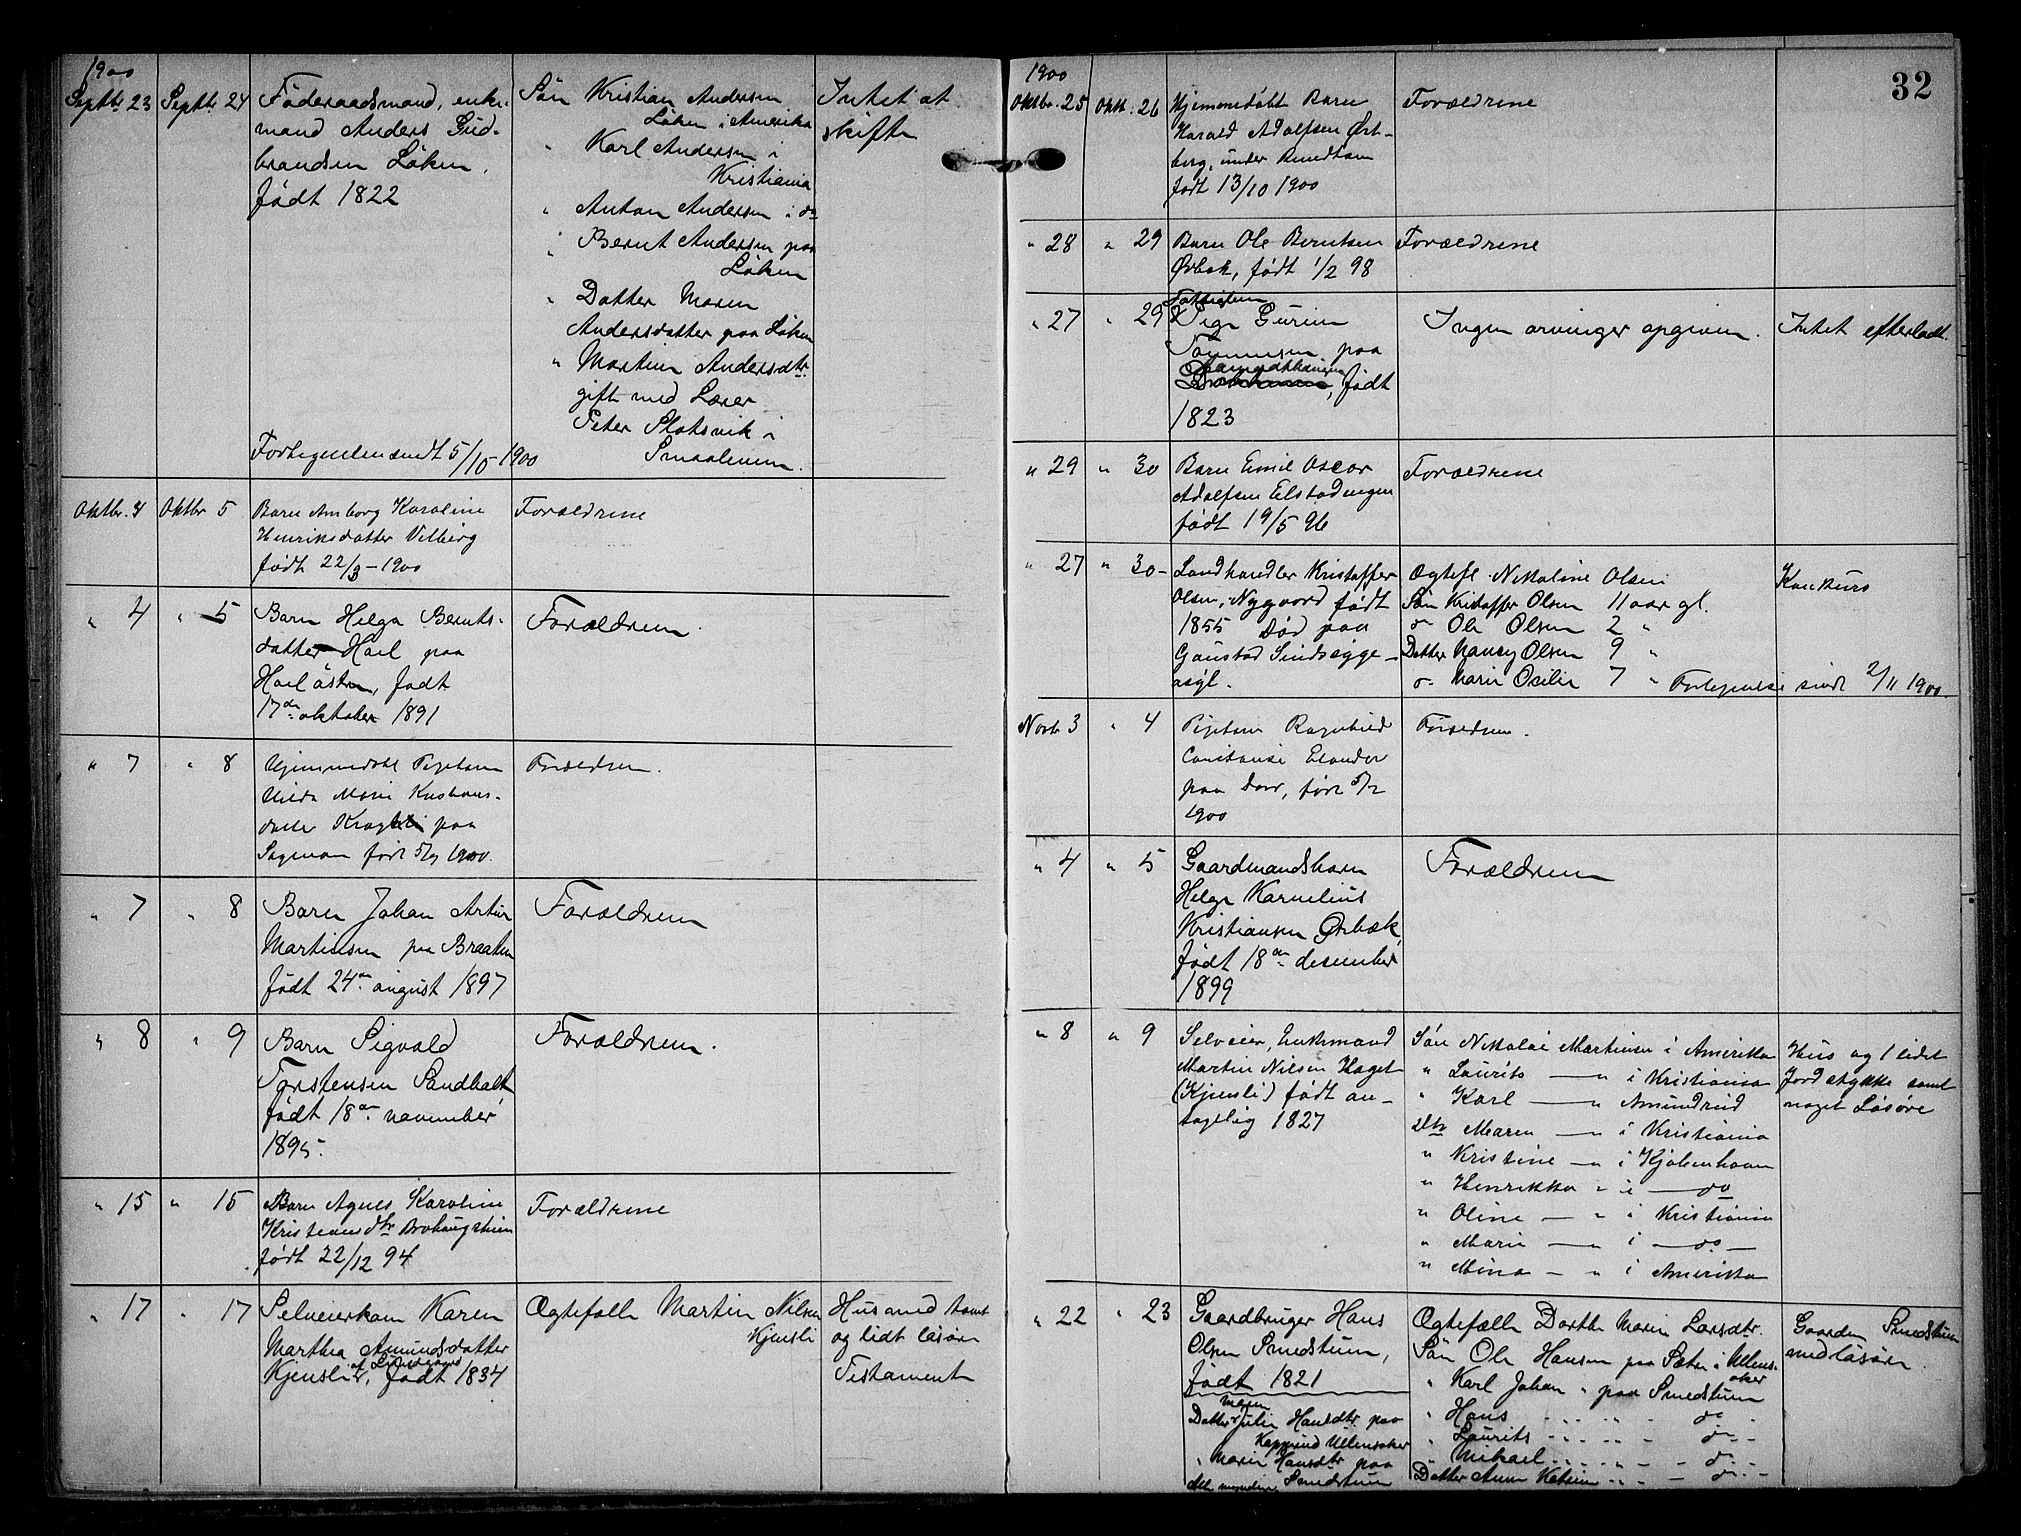 1900
Septbr 23
Septbr 24
Föderaadsmand, enke-
mand Anders Gud-
brandsen Löken,
født 1822
Fortegnelsen sendt 5/10 1900
Sön Kristian Andersen
Löken i Amerika
" Karl Andersen i
Kristiania
" Anton Andersen i do
" Bernt Andersen paa
Löken
" Datter Maren
Andersdatter paa Löken
" Martin Andersdtr.
gift med Lærer
Peter Slotsvik i
Smaalenene.
Intet at
skifte
Oktbr. 4
Oktbr 5
Barn Karoline
Henriksdatter Vilberg
født 22/3 - 1900
Forældrene
" 4
" 5
Barn Helga Bernts-
datter Hael paa
Hael östre, født
17de oktober 1891
Forældrene
" 7
" 8
Hjemmedøbt Pigebarn
Hilda Marie Kristians-
datter paa
født 5/9 1900.
Forældrene.
" 7
" 8
Barn Johan Artur
Martinsen paa Braaten
født 24de august 1897
Forældrene
" 8
" 9
Barn Sigvald
Torstensen Sandholt
født 18de november
1895.
Forældrene.
" 15
" 15
Barn Agnes Karoline
Kristiansdtr Brohaugsteien
født 22/12 94
Forældrene
" 17
" 17
Selveierkone Karen
Marthea Amundsdatter
Kjensli, født 1834
Ægtefælle Martin Nilsen
Kjensli
Hus med tomt
og lidt løsøre
Testament
32
1900
Oktbr. 25
Oktb. 26
Hjemmedøbt Barn
Harald Adolfsen Ør-
berg, under
født 13/10 1900
Forældrene
" 28
" 29
Barn Ole Berntsen
Ørbæk, født 1/2 98
Forældrene
" 27
" 29
Fattiglem
Pige Gurine
paa
født
1823
Ingen arvinger opgiven.
Intet efterladt.
" 29
" 30
Barn Emil Oscar
Adolfsen Elstadengen
født 19/5 96
Forældrene
" 27
" 30
Landhandler Kristoffer
Olsen, Nygaard født
1855 Død paa
Gaustad Sindssyge-
asyl.
Ægtef. Nikoline Olsen
Sön Kristoffer Olsen 11 aar gl.
do Ole Olsen 2 "
Datter Nancy Olsen 9 "
do Marie Osilie 7 " Fortegnelse sendt 2/11 1900.
Konkurs
Novbr 3
" 4
Pigebarn Ragnhild
Constanse Elander
paa født 5/2
1900
Forældrene.
" 4
" 5
Gaardmandsbarn
Helge Kornelius
Kristiansen Ørbæk
født 18de desember
1899
Forældrene
" 8
" 9
Selveier, Enkemand
Martin Nilsen Haget
(Kjensli) født an-
tagelig 1827
Sön Nikolai Martinsen i Amerika
" Laurits — " i Kristiania
" Karl — " Amundrud
dtr Maren — " i Kristiania
" Kristine — " i Kjøbenhavn
" Henrikka " i — do
" Oline — " i Kristiania
" Marie — " i — do —
" Mina — " i Amerika
Hus og 1 lidet
Jordstykke samt
noget Løsøre
" 22
" 23
Gaardbruger Hans
Olsen Smedstuen,
født 1821
Maren
Datter Julie Hansdtr paa
Ullensaker
" Marie Hansdtr paa
Smedstuen
Ægtefælle Dorthe Marie Larsdtr.
Sön Ole Hansen paa Sæter i Ullens-
aker
" Karl Johan " paa Smedstuen
" Hans " " do -
" Laurits " " do -
" Mikael " " do -
Datter Anne Katrine " " do -
Gaarden Smedstuen
med løsøre.